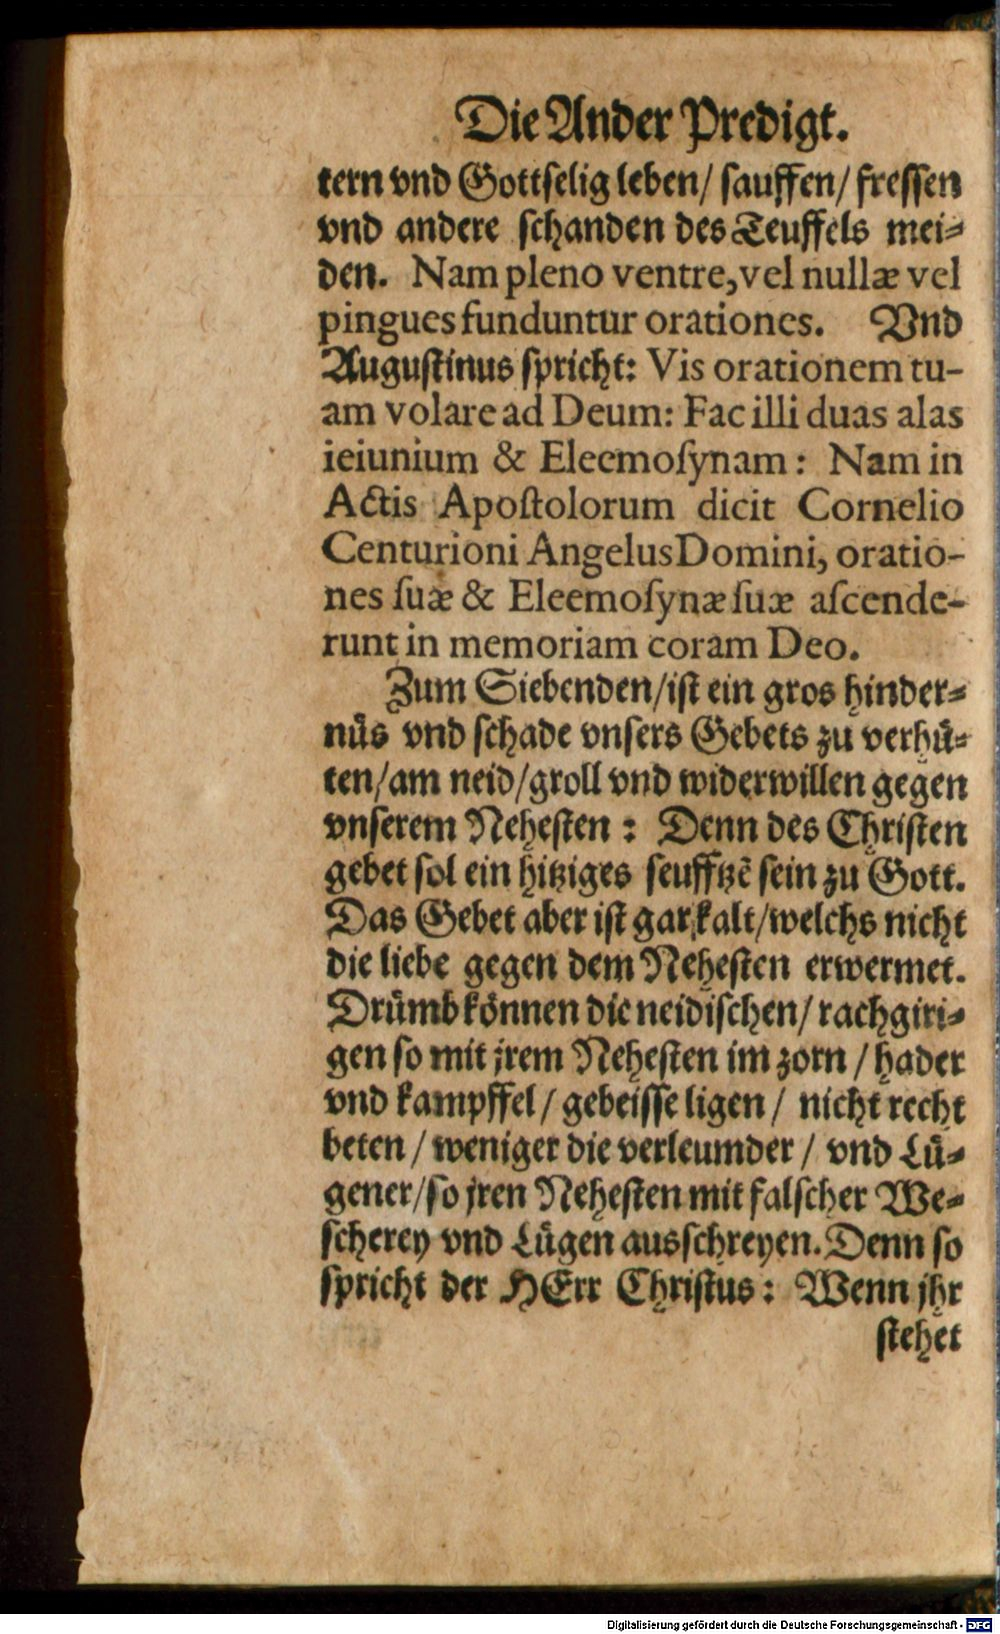 Die Ander Predigt.
tern vnd Gottselig leben/ sauffen/ fressen
vnd andere schanden des Teuffels mei-
den. Nam pleno ventre, vel nullæ vel
pingues funduntur orationes. Vnd
Augustinus spricht: Vis orationem tu-
am volare ad Deum: Fac illi duas alas
ieiunium & Eleemoſynam: Nam in
Actis Apoſtolorum dicit Cornelio
Centurioni Angelus Domini, oratio-
nes ſuæ & Eleemoſynæ ſuæ aſcende-
runt in memoriam coram Deo.
Zum Siebenden/ist ein gros hinder-
nüs vnd schade vnsers Gebets zu verhü-
ten/am neid/groll vnd widerwillen gegen
vnserem Nehesten: Denn des Christen
gebet sol ein hitziges seufftzē sein zu Gott.
Das Gebet aber ist gar kalt/welchs nicht
die liebe gegen dem Nehesten erwermet.
Drümb können die neidischen/ rachgiri-
gen so mit jrem Nehesten im zorn / hader
vnd kampffel/ gebeisse ligen/ nicht recht
beten / weniger die verleumder / vnd Lü-
gener/so jren Nehesten mit falscher We-
scherey vnd Lügen ausschreyen. Denn so
spricht der HErr Christus: Wenn jhr
stehet
Digitalisierung gefördert durch die Deutsche Forschungsgemeinschaft - DFG